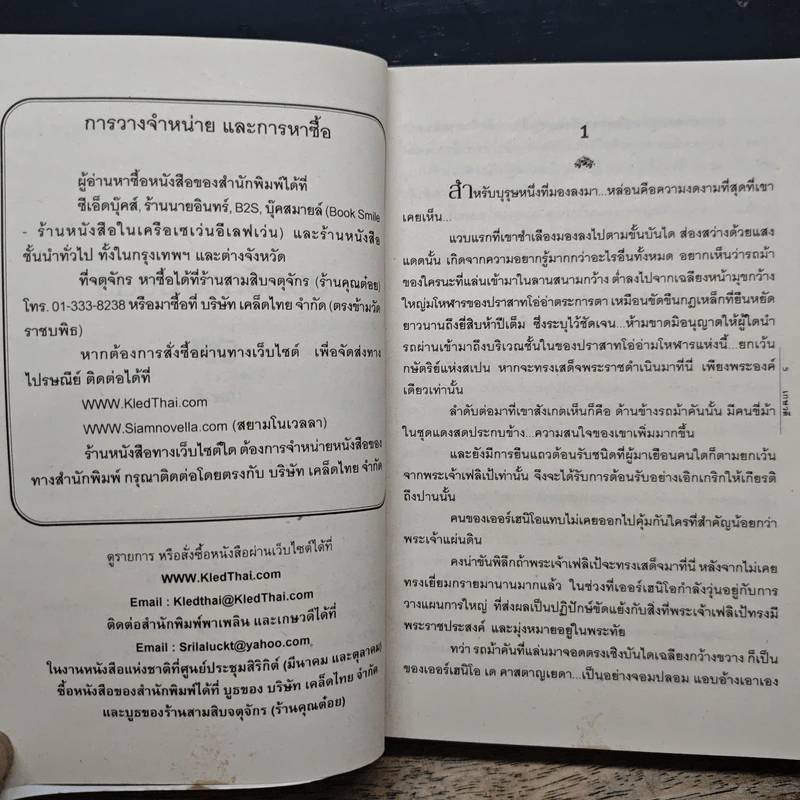 การวางจำหน่าย และการหาซื้อ
ผู้อ่านหาซื้อหนังสือของสำนักพิมพ์ได้ที่
ซีเอ็ดบุ๊คส์, ร้านนายอินทร์, B2S, บุ๊คสมายล์ (Book Smile
- ร้านหนังสือในเครือเซเว่นอีเลฟเว่น) และร้านหนังสือ
ชั้นนำทั่วไป ทั้งในกรุงเทพฯ และต่างจังหวัด
ที่จตุจักร หาซื้อได้ที่ร้านสามสิบจตุจักร (ร้านคุณต๋อย)
โทร. 01-333-8238 หรือมาซื้อที่ บริษัท เคล็ดไทย จำกัด (ตรงข้ามวัด
ราชบพิธ)
หากต้องการสั่งซื้อผ่านทางเว็บไซต์ เพื่อจัดส่งทาง
ไปรษณีย์ ติดต่อได้ที่
WWW.KledThai.com
WWW.Siamnovella.com (สยามโนเวลลา)
ร้านหนังสือทางเว็บไซต์ใด ต้องการจำหน่ายหนังสือของ
ทางสำนักพิมพ์ กรุณาติดต่อโดยตรงกับ บริษัท เคล็ดไทย จำกัด
ดูรายการ หรือสั่งซื้อหนังสือผ่านเว็บไซต์ได้ที่
WWW.KledThai.com
Email : Kledthai@KledThai.com
ติดต่อสำนักพิมพ์พาเพลิน และเกษวดีได้ที่
Email : Srilaluckt@yahoo.com
ในงานหนังสือแห่งชาติที่ศูนย์ประชุมสิริกิติ์ (มีนาคม และตุลาคม)
ซื้อหนังสือของสำนักพิมพ์ได้ที่ บูธของ บริษัท เคล็ดไทย จำกัด
และบูธของร้านสามสิบจตุจักร (ร้านคุณต๋อย)
1
สำหรับบุรุษหนึ่งที่มองลงมา...หล่อนคือความงดงามที่สุดที่เขา
เคยเห็น...
แวบแรกที่เขาชำเลืองมองลงไปตามขั้นบันได ส่องสว่างด้วยแสง
แดดนั้น เกิดจากความอยากรู้มากกว่าอะไรอื่นทั้งหมด อยากเห็นว่ารถม้า
ของใครนะที่แล่นเข้ามาในลานสนามกว้าง ต่ำลงไปจากเฉลียงหน้ามุขกว้าง
ใหญ่มโหฬารของปราสาทโอ่อ่าตระการตา เหมือนขัดขืนกฎเหล็กที่ยืนหยัด
ยาวนานถึงยี่สิบห้าปีเต็ม ซึ่งระบุไว้ชัดเจน...ห้ามขาดมิอนุญาตให้ผู้ใดนำ
รถผ่านเข้ามาถึงบริเวณชั้นในของปราสาทโอ่อ่ามโหฬารแห่งนี้...ยกเว้น
กษัตริย์แห่งสเปน หากจะทรงเสด็จพระราชดำเนินมาที่นี่ เพียงพระองค์
เดียวเท่านั้น
ลำดับต่อมาที่เขาสังเกตเห็นก็คือ ด้านข้างรถม้าคันนั้น มีคนขี่ม้า
ในชุดแดงสดประกบข้าง...ความสนใจของเขาเพิ่มมากขึ้น
และยังมีการยืนแถวต้อนรับชนิดที่ผู้มาเยือนคนใดก็ตามยกเว้น
จากพระเจ้าเฟลิเป้เท่านั้น จึงจะได้รับการต้อนรับอย่างเอิกเกริกให้เกียรติ
ถึงปานนั้น
คนของเออร์เฮนิโอแทบไม่เคยออกไปคุ้มกันใครที่สำคัญน้อยกว่า
พระเจ้าแผ่นดิน
คงน่าขันพิลึกถ้าพระเจ้าเฟลิเป้จะทรงเสด็จมาที่นี่ หลังจากไม่เคย
ทรงเยี่ยมกรายมานานมากแล้ว ในช่วงที่เออร์เฮนิโอกำลังวุ่นอยู่กับการ
วางแผนการใหญ่ ที่ส่งผลเป็นปฏิปักษ์ขัดแย้งกับสิ่งที่พระเจ้าเฟลิเป้ทรงมี
พระราชประสงค์ และมุ่งหมายอยู่ในพระทัย
ทว่า รถม้าคันที่แล่นมาจอดตรงเชิงบันไดเฉลียงกว้างขวาง ก็เป็น
ของเออร์เฮนิโอ เด คาสตาญเยดา...เป็นอย่างจอมปลอม แอบอ้างเอาเอง
5
เกษวดี